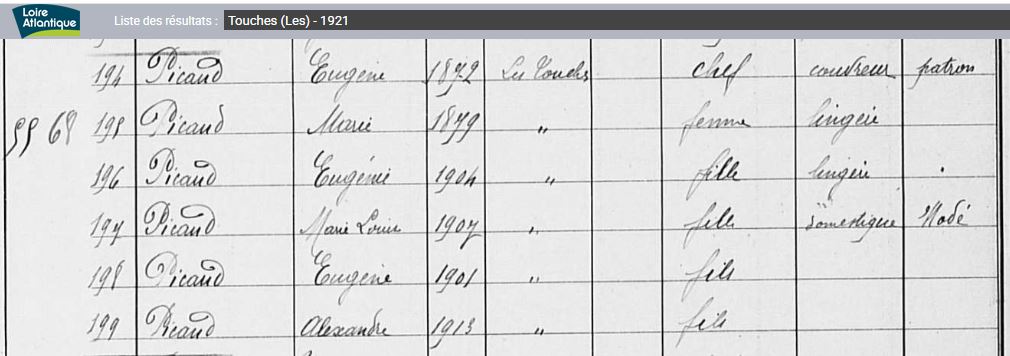 Loire Atlantique
Liste des résultats : Touches (Les) - 1921
194 Picaud Eugène 1872 Les Touches chef couvreur patron
55 68 195 Picaud Marie 1879 " femme lingère
196 Picaud Eugénie 1904 " fille lingère
197 Picaud Marie Louise 1907 " fille domestique
198 Picaud Eugène 1901 " fils
199 Picaud Alexandre 1913 " fils